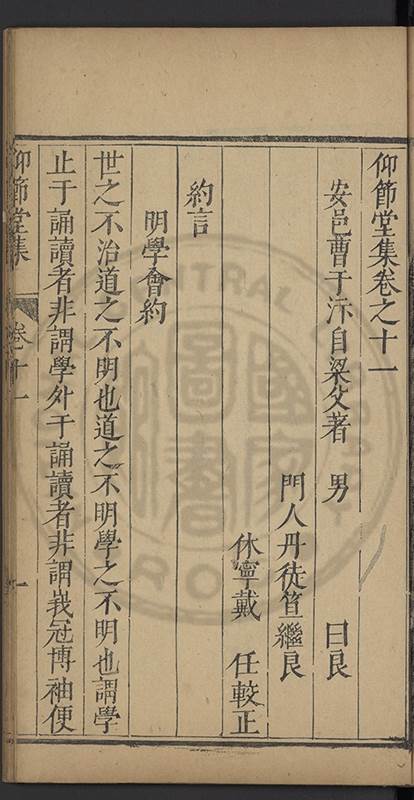 仰節堂集卷之十一
安邑曹于汴自梁父著 男 曰良
門人丹徒笪繼良
休寧戴 任較正
約言
明學會約
世之不治道之不明也道之不明學之不明也謂學
止于誦讀者非謂學外于誦讀者非謂峩冠博袖便
仰節堂集 卷十一 一